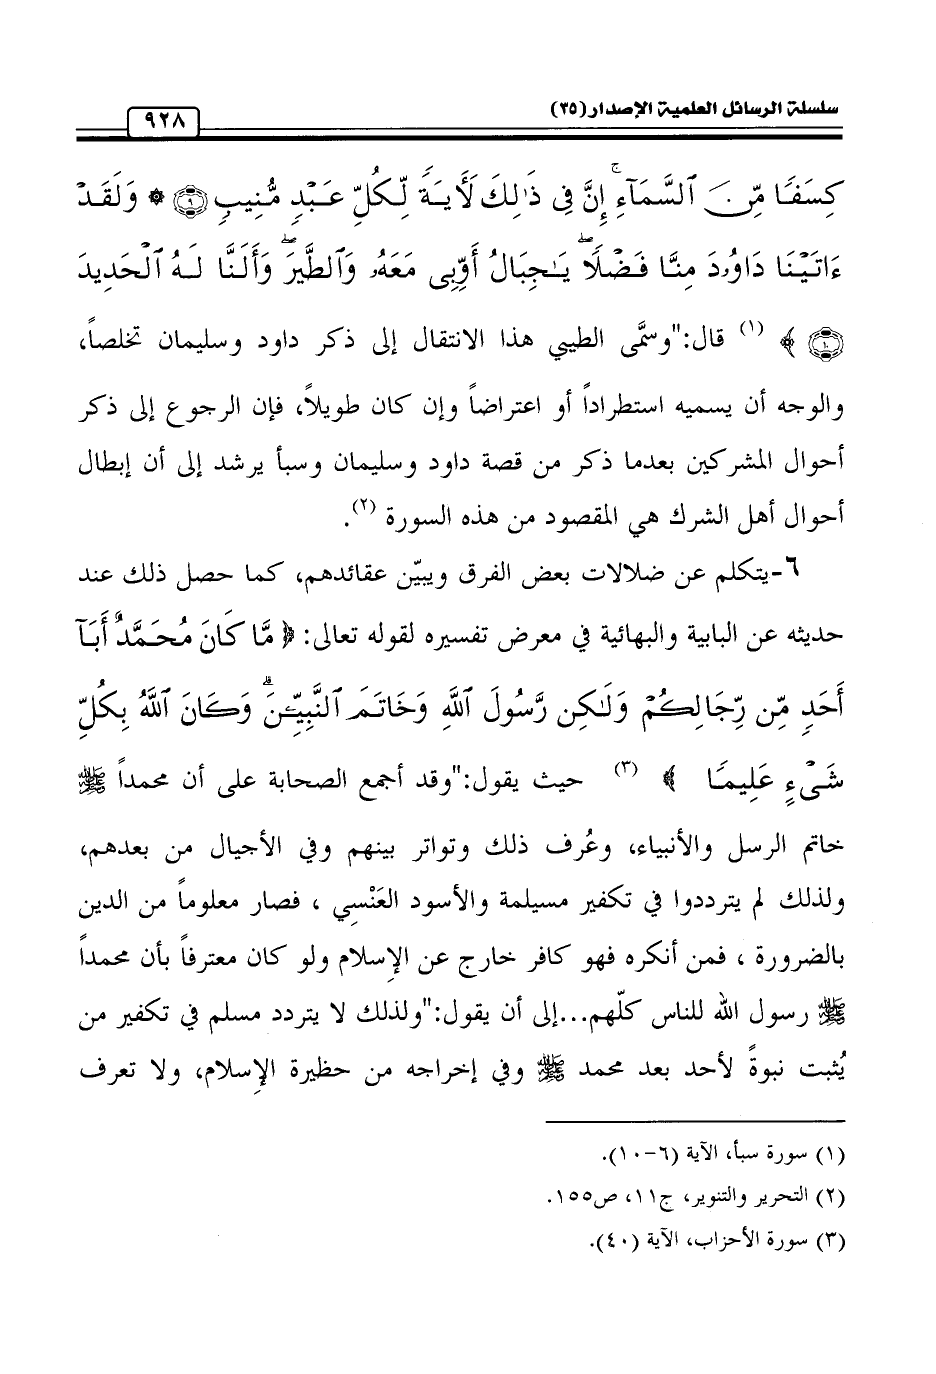 سلسلة الرسائل العلمية الإصدار (٢٥)
٩٢٨
كِسَفًا مِّنَ ٱلسَّمَآءِ ۚ إِنَّ فِى ذَٰلِكَ لَأٓيَةً لِّكُلِّ عَبْدٍ مُّنِيبٍ ۝٩ ۞ وَلَقَدْ
ءَاتَيْنَا دَاوُۥدَ مِنَّا فَضْلًا ۖ يَـٰجِبَالُ أَوِّبِى مَعَهُۥ وَٱلطَّيْرَ ۖ وَأَلَنَّا لَهُ ٱلْحَدِيدَ
۝١٠ ﴾ (١) قال:"وسمَّى الطيبي هذا الانتقال إلى ذكر داود وسليمان تخلصاً،
والوجه أن يسميه استطراداً أو اعتراضاً وإن كان طويلاً، فإن الرجوع إلى ذكر
أحوال المشركين بعدما ذكر من قصة داود وسليمان وسبأ يرشد إلى أن إبطال
أحوال أهل الشرك هي المقصود من هذه السورة (٢).
٦-يتكلم عن ضلالات بعض الفرق ويبيّن عقائدهم، كما حصل ذلك عند
حديثه عن البابية والبهائية في معرض تفسيره لقوله تعالى: ﴿ مَّا كَانَ مُحَمَّدٌ أَبَآ
أَحَدٍ مِّن رِّجَالِكُمْ وَلَـٰكِن رَّسُولَ ٱللَّهِ وَخَاتَمَ ٱلنَّبِيِّـۧنَ ۗ وَكَانَ ٱللَّهُ بِكُلِّ
شَىْءٍ عَلِيمًا ﴾ (٣) حيث يقول:"وقد أجمع الصحابة على أن محمداً ﷺ
خاتم الرسل والأنبياء، وعُرف ذلك وتواتر بينهم وفي الأجيال من بعدهم،
ولذلك لم يترددوا في تكفير مسيلمة والأسود العَنْسي ، فصار معلوماً من الدين
بالضرورة ، فمن أنكره فهو كافر خارج عن الإسلام ولو كان معترفاً بأن محمداً
ﷺ رسول الله للناس كلّهم...إلى أن يقول:"ولذلك لا يتردد مسلم في تكفير من
يُثبت نبوةً لأحد بعد محمد ﷺ وفي إخراجه من حظيرة الإسلام، ولا تعرف
(١) سورة سبأ، الآية (٦-١٠).
(٢) التحرير والتنوير، ج١١، ص١٥٥.
(٣) سورة الأحزاب، الآية (٤٠).